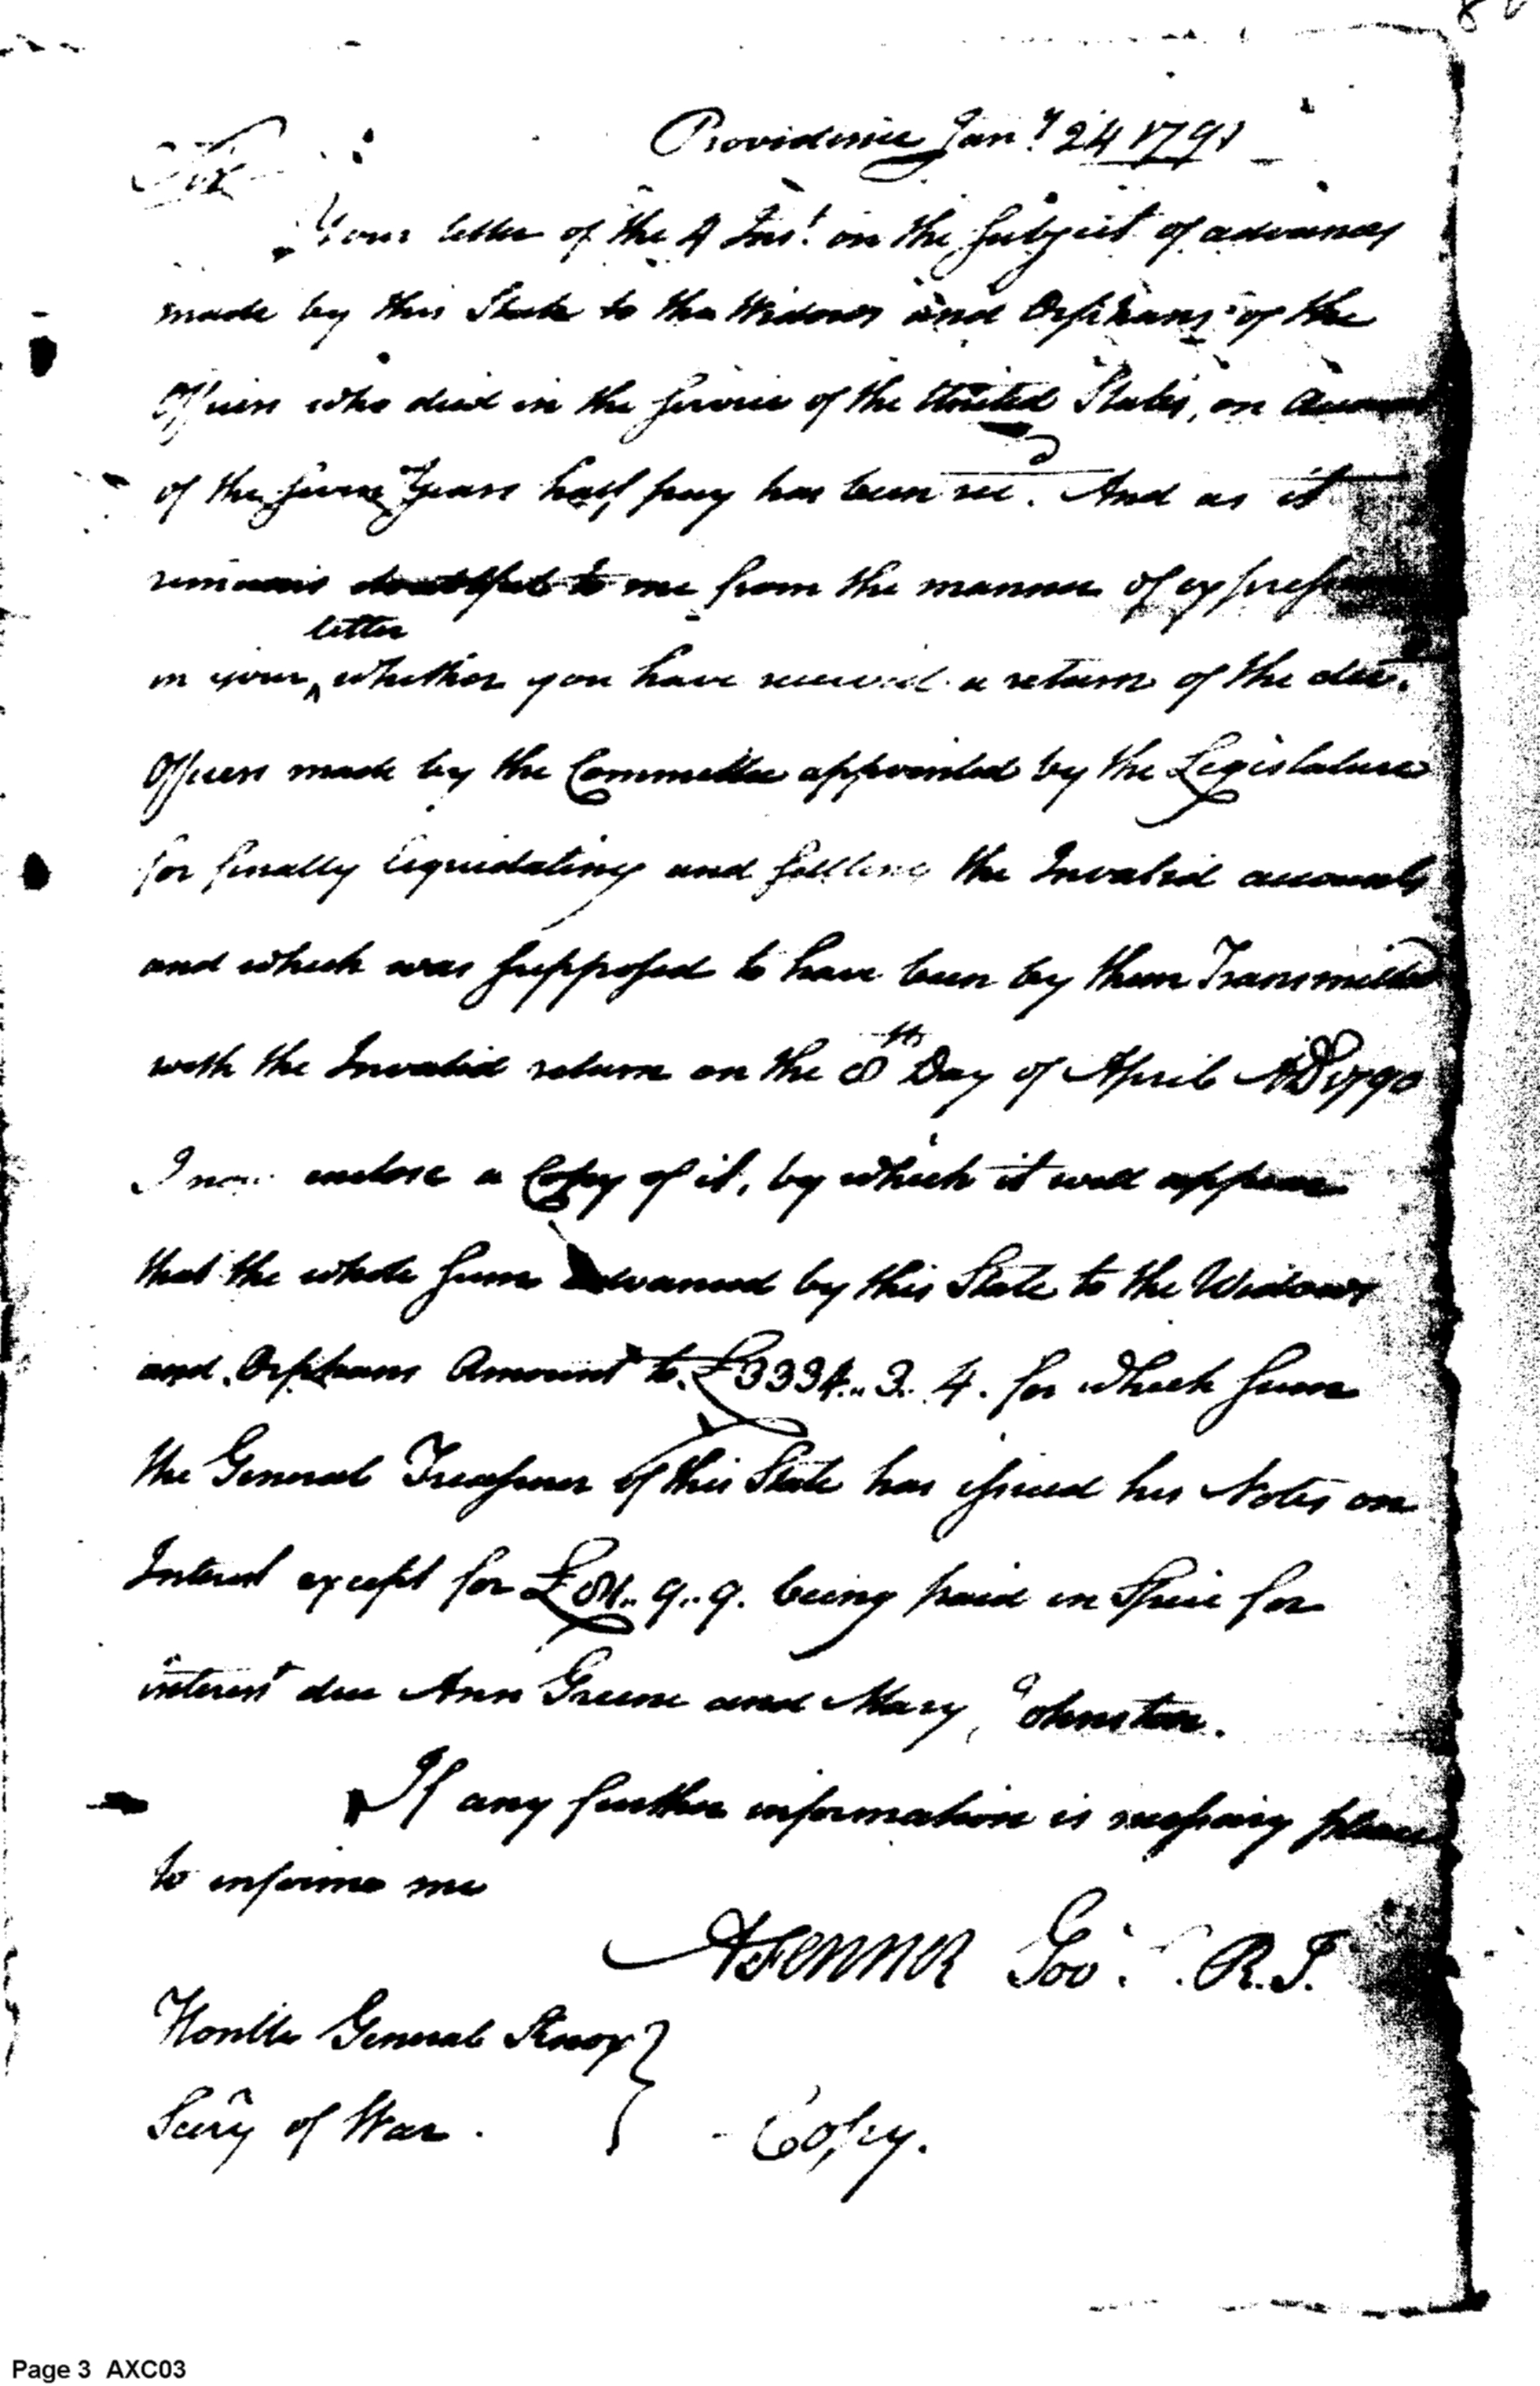 Providence Jany 24 1791
Sir
Your letter of the 4 Inst. on the Subject of advances
made by this State to the Widows and Orphans of the
Officers who died in the Service of the United States, on account
of the Seven Years half pay has been rec. And as it
remains doubtful to me from the manner of
letter
in your ^ whether you have received a return of the dec.
Officers made by the Committee appointed by the Legislature
for finally liquidating and Settling the Invalid accounts
and which was Supposed to have been by them Transmitted
with the Invalid return on the 8th Day of April AD 1790
I now enclose a Copy of it, by which it will appear
that the whole Sum advanced by this State to the Widows
and Orphans Amount to £3334..3..4. for which Sum
the General Treasurer of this State has issued his Notes on
Interest except for £ 9..9. being paid in Specie for
interest due Ann Greene and Mary Johnston.
If any further information is necessary please
to informe me
A Fenner Gov. R.I.
Honble General Knox }
Secry of War . }
Copy.
Page 3 AXC03